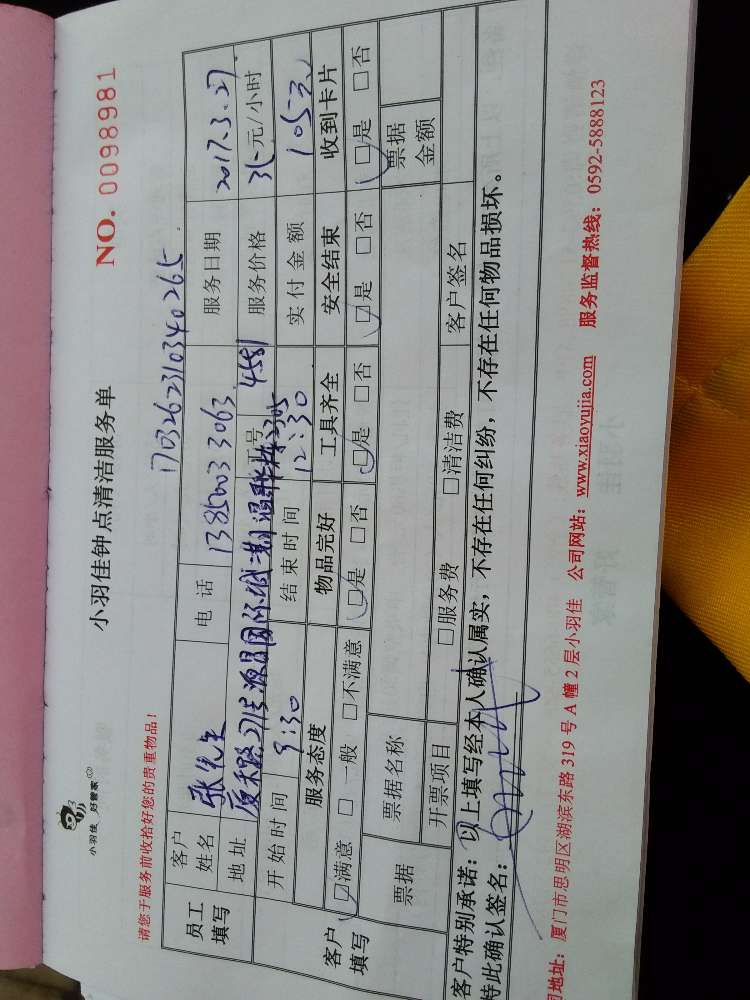 小羽佳 好管家
小羽佳钟点清洁服务单
NO. 0098981
请您于服务前收拾好您的贵重物品!
1703262310340265
员工填写 客户姓名 张先生 电话 13850033063 服务日期 2017.3.27
地址 工号 4581 服务价格 35元/小时
开始时间 9:30 结束时间 12:30 实付金额 105元
客户填写 服务态度 物品完好 工具齐全 安全结束 收到卡片
□满意 □一般 □不满意 □是 □否 □是 □否 □是 □否 □是 □否
票据 票据名称 票据金额
开票项目 □服务费 □清洁费 客户签名
客户特别承诺:以上填写经本人确认属实,不存在任何纠纷,不存在任何物品损坏。
特此确认签名:
司地址:厦门市思明区湖滨东路 319 号 A 幢 2 层小羽佳 公司网站:www.xiaoyujia.com 服务监督热线:0592-5888123